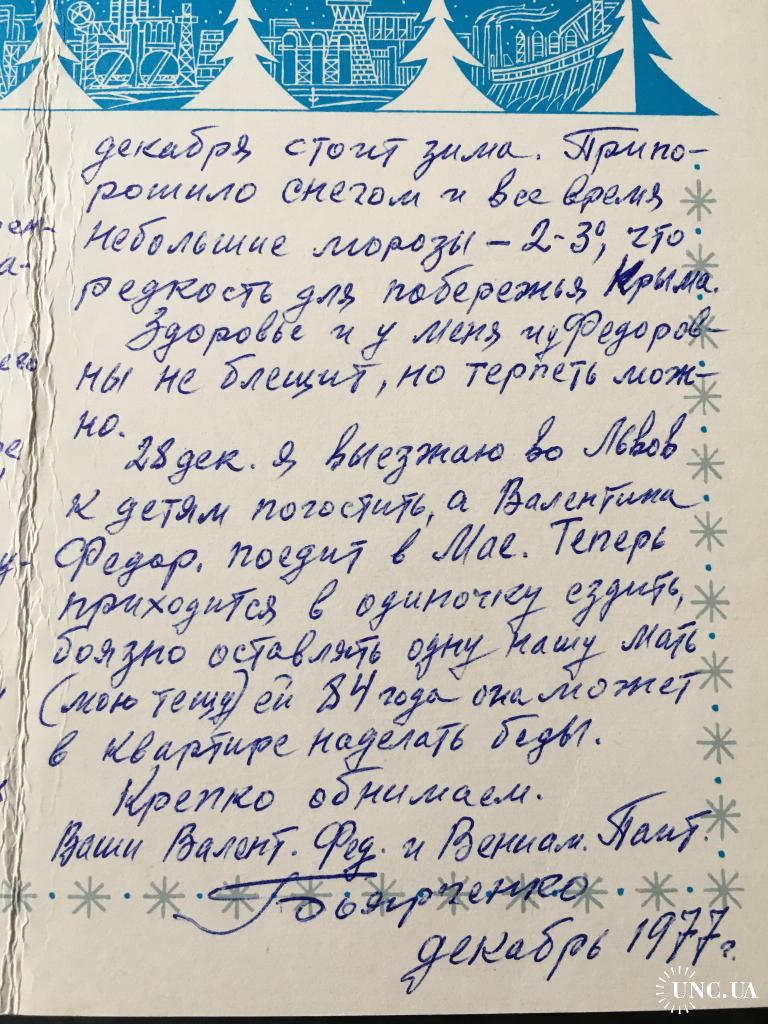 декабря стоит зима. Припо-
рошило снегом и все время
небольшие морозы – 2-3°, что
редкость для побережья Крыма.
Здоровье и у меня и у Федоров-
ны не блещит, но терпеть мож-
но.
28 дек. я выезжаю во Львов
к детям погостить, а Валентина
Федор. поедит в Мае. Теперь
приходится в одиночку ездить,
боязно оставлять одну нашу мать
(мою тещу) ей 84 года она может
в квартире наделать беды.
Крепко обнимаем.
Ваши Валент. Фед. и Вениам. Пант.
декабрь 1977 г.
UNC.UA